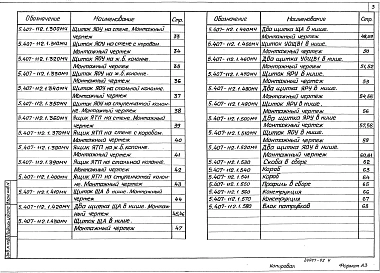 3
Обозначение Наименование Стр.
5.407-112.1.300МЧ Щиток ЯОУ на стене. Монтажный чертеж 33
5.407-112.1.310МЧ Щиток ЯОУ на стене с коробом. Монтажный чертеж 34
5.407-112.1.320МЧ Щиток ЯОУ на ж.б. колонне. Монтажный чертеж 35
5.407-112.1.330МЧ Щиток ЯОУ на ж.б. колонне. Монтажный чертеж 36
5.407-112.1.340МЧ Щиток ЯОУ на стальной колонне. Монтажный чертеж 37
5.407-112.1.350МЧ Щиток ЯОУ на ступенчатой колонне. Монтажный чертеж 38
5.407-112.1.360МЧ Ящик ЯТП на стене. Монтажный чертеж 39
5.407-112.1.370МЧ Ящик ЯТП на стене с коробом. Монтажный чертеж 40
5.407-112.1.380МЧ Ящик ЯТП на ж.б. колонне. Монтажный чертеж 41
5.407-112.1.390МЧ Ящик ЯТП на стальной колонне. Монтажный чертеж 42
5.407-112.1.400МЧ Ящик ЯТП на ступенчатой колонне. Монтажный чертеж 43
5.407-112.1.410МЧ Щиток ЩА в нише. Монтажный чертеж 44
5.407-112.1.420МЧ Два щитка ЩА в нише. Монтажный чертеж 45,46
5.407-112.1.430МЧ Щиток ЩА в нише. Монтажный чертеж 47
Обозначение Наименование Стр.
5.407-112.1.440МЧ Два щитка ЩА в нише. Монтажный чертеж 48,49
5.407-112.1.450МЧ Щиток УОЩВ1 в нише. Монтажный чертеж 50
5.407-112.1.460МЧ Два щитка УОЩВ1 в нише. Монтажный чертеж 51,52
5.407-112.1.470МЧ Щиток ЯОУ в нише. Монтажный чертеж 53
5.407-112.1.480МЧ Два щитка ЯОУ в нише. Монтажный чертеж 54,55
5.407-112.1.490МЧ Щиток ЯОУ в нише. Монтажный чертеж 56
5.407-112.1.500МЧ Два щитка ЯОУ в нише. Монтажный чертеж 57,58
5.407-112.1.510МЧ Щиток ЯОУ в нише. Монтажный чертеж 59
5.407-112.1.520МЧ Два щитка ЯОУ в нише. Монтажный чертеж 60,61
5.407-112.1.530 Скоба в сборе 62
5.407-112.1.540 Короб 63
5.407-112.1.541 Короб 64
5.407-112.1.550 Профиль в сборе 65
5.407-112.1.560 Конструкция 66
5.407-112.1.570 Конструкция 67
5.407-112.1.580 Блок патрубков 68
Копировал Формат А3